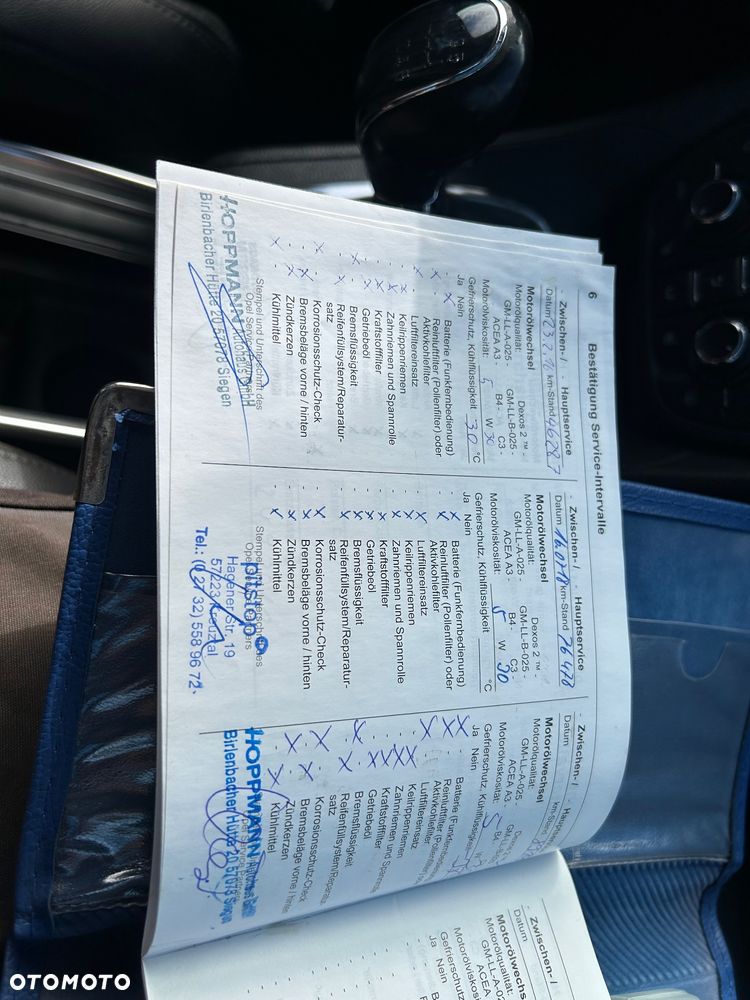 6
Bestätigung Service-Intervalle
- Zwischen- / - Hauptservice
Datum 23.2.16 km-Stand 46287
Motorölwechsel
Motorölqualität: Dexos 2 ™ -
GM-LL-A-025 - GM-LL-B-025 -
ACEA A3 - B4 - C3 -
Motorölviskosität: 5 W 30
Gefrierschutz, Kühlflüssigkeit 30 °C
Ja Nein
Batterie (Funkfernbedienung)
Reinluftfilter (Pollenfilter) oder
Aktivkohlefilter
Luftfiltereinsatz
Keilrippenriemen
Zahnriemen und Spannrolle
Kraftstofffilter
Getriebeöl
Bremsflüssigkeit
Reifenfüllsystem/Reparatur-
satz
Korrosionsschutz-Check
Bremsbeläge vorne / hinten
Zündkerzen
Kühlmittel
Stempel und Unterschrift des
Opel Service
HOPPMANN Autohaus GmbH
Birlenbacher Hütte 20 57078 Siegen
- Zwischen- / - Hauptservice
Datum km-Stand 76478
Motorölwechsel
Motorölqualität: Dexos 2 ™ -
GM-LL-A-025 - GM-LL-B-025 -
ACEA A3 - B4 - C3 -
Motorölviskosität: 5 W 30
Gefrierschutz, Kühlflüssigkeit °C
Ja Nein
Batterie (Funkfernbedienung)
Reinluftfilter (Pollenfilter) oder
Aktivkohlefilter
Luftfiltereinsatz
Keilrippenriemen
Zahnriemen und Spannrolle
Kraftstofffilter
Getriebeöl
Bremsflüssigkeit
Reifenfüllsystem/Reparatur-
satz
Korrosionsschutz-Check
Bremsbeläge vorne / hinten
Zündkerzen
Kühlmittel
Stempel und Unterschrift des
Opel
pitstop
Hagener Str. 19
57223 Kreuztal
Tel.: (0 27 32) 558 96 72
- Zwischen- /
Datum km-Stand
Motorölwechsel
Motorölqualität:
GM-LL-A-025
ACEA A3 - B4
Motorölviskosität: 5 W
Gefrierschutz, Kühlflüssigkeit
Ja Nein
Batterie (Funkfernbe
Reinluftfilter (Pollenfilter
Aktivkohlefilter
Luftfiltereinsatz
Keilrippenriemen
Zahnriemen und Spannro
Kraftstofffilter
Getriebeöl
Bremsflüssigkeit
Reifenfüllsystem/Reparatu
satz
Korrosionsschutz-Check
Bremsbeläge vorne / hinten
Zündkerzen
Kühlmittel
HOPPMANN Autohaus GmbH
Birlenbacher Hütte 20 57078 Siegen
- Zwischen- /
Datum
Motorölwechs
Motorölqualität:
GM-LL-A-0
ACEA
Motorölviskosit
Gefriersch
Ja Nein
OTOMOTO